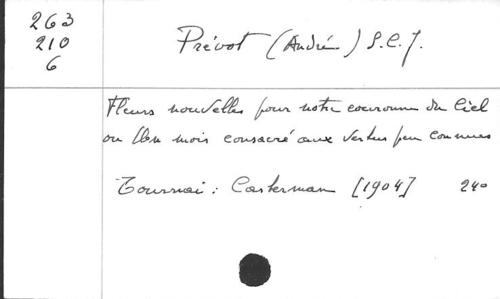 263
210
6
Prévot (André) S.C.J.
Fleurs nouvelles pour notre couronne du Ciel
ou Un mois consacré aux vertus peu connues
Tournai : Casterman [1904] 240